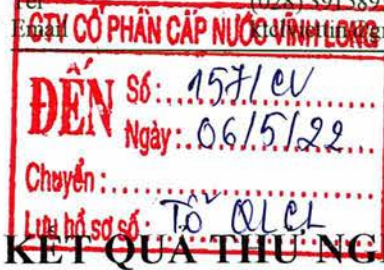 CTY CỔ PHẦN CẤP NƯỚC VĨNH LONG
ĐẾN
Số: 157/CV
Ngày: 06/5/22
Chuyển:
Lưu hồ sơ số: Tổ QLCL
KẾT QUẢ THỬ NG